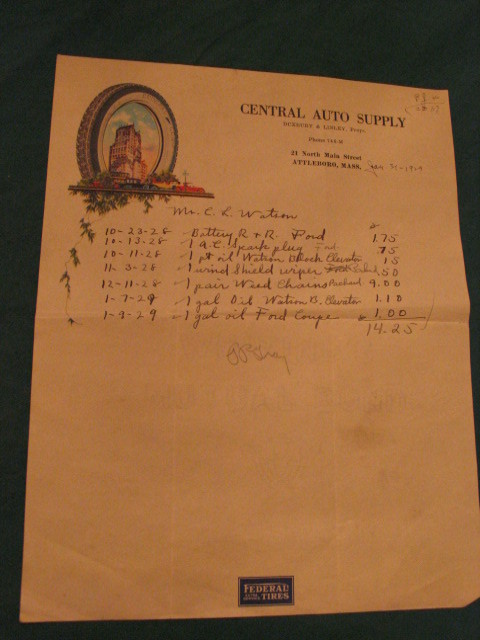 CENTRAL AUTO SUPPLY
DUXBURY & LINLEY, Props.
21 North Main Street
ATTLEBORO, MASS.
Mr. C. L. Watson
10-23-28 Battery R & R. Ford 1.75
10-13-28 1 A.C. Spark plug Ford .75
10-11-28 1 pt oil Watson Block Elevator 15
11-3-28 1 wind shield wiper 50
12-11-28 1 pair Weed Chains Packard 9.00
1-7-29 1 gal Oil Watson B. Elevator 1.10
1-9-29 1 gal oil Ford Coupe 1.00
14.25
FEDERAL
TIRES